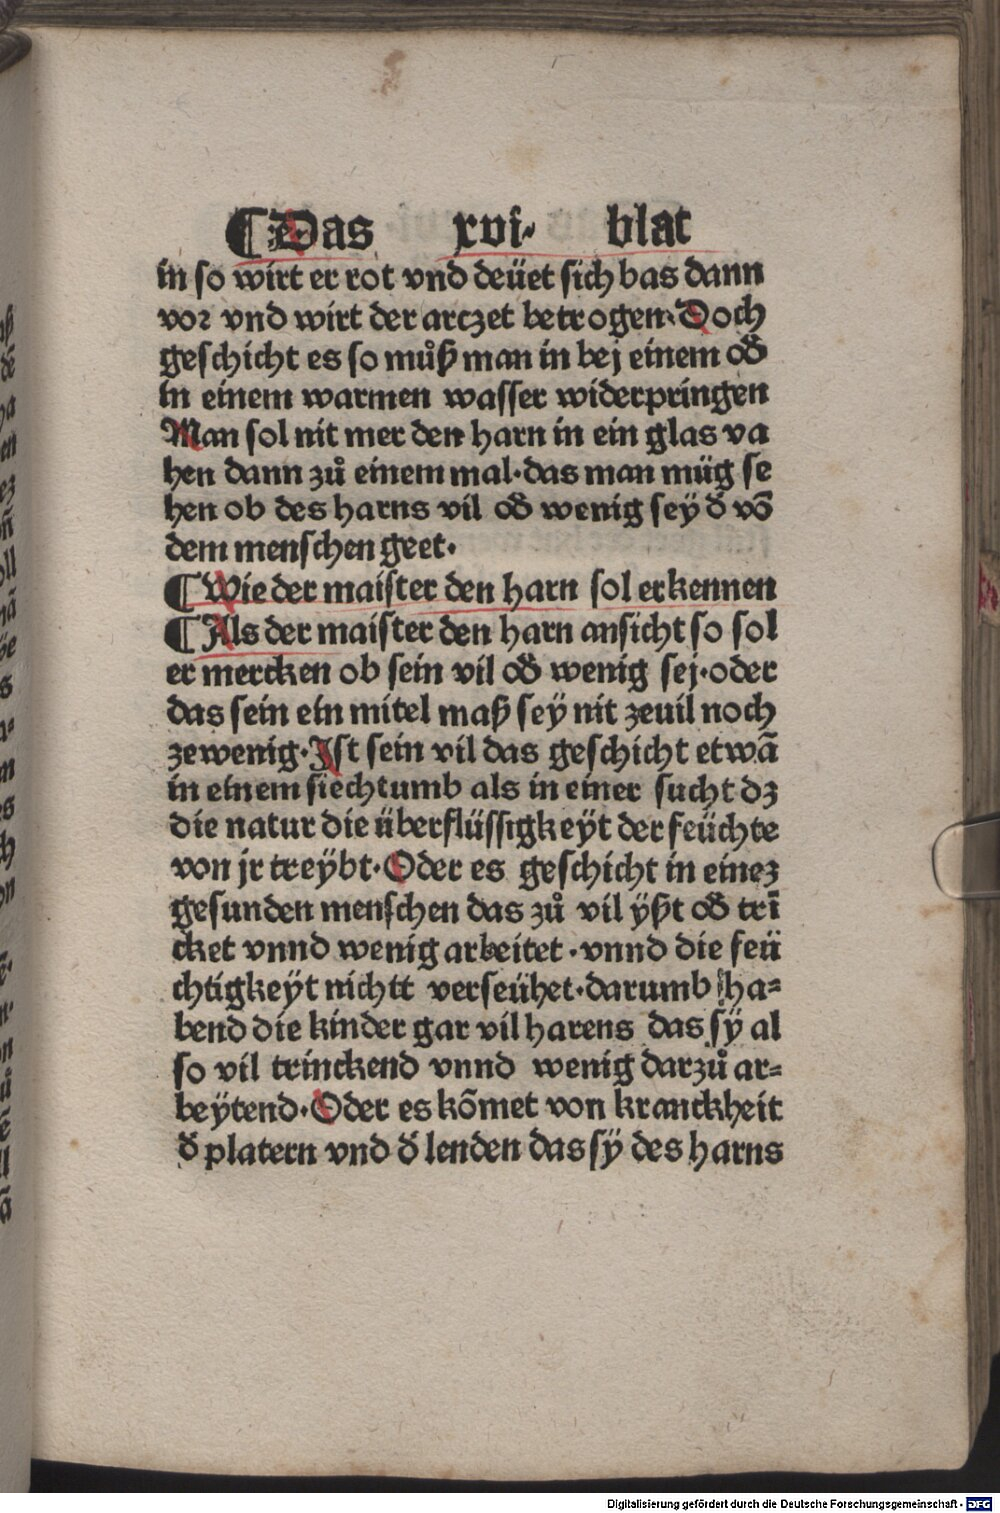 ¶ Das xvi· blat
in so wirt er rot vnd deüet sich bas dann
vor vnd wirt der arczet betrogen· Doch
geschicht es so můß man in bej einem od̄
in einem warmen wasser widerpringen
Man sol nit mer den harn in ein glas va
hen dann zů einem mal· das man müg se
hen ob des harns vil od̄ wenig sey d̄ vō
dem menschen geet·
¶ Wie der maister den harn sol erkennen
¶ Als der maister den harn ansicht so sol
er mercken ob sein vil od̄ wenig sej· oder
das sein ein mitel maß sey nit zeuil noch
zewenig· Ist sein vil das geschicht etwā
in einem siechtumb als in einer sucht dz
die natur die überflüssigkeyt der feüchte
von jr treÿbt· Oder es geschicht in einez
gesunden menschen das zů vil ÿßt od̄ trī
cket vnnd wenig arbeitet· vnnd die feü
chtigkeÿt nichtt verseühet· darumb ha⸗
bend die kinder gar vil harens das sÿ al
so vil trinckend vnnd wenig darzů ar⸗
beÿtend· Oder es kōmet von kranckheit
d̄ platern vnd d̄ lenden das sÿ des harns
Digitalisierung gefördert durch die Deutsche Forschungsgemeinschaft - DFG